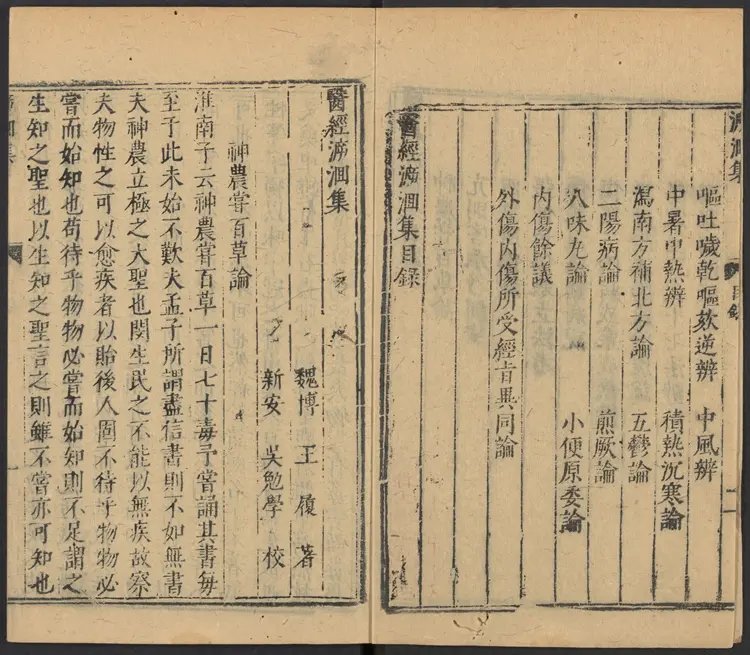 溯洄集 目錄 二
嘔吐噦乾嘔欬逆辨 中風辨
中暑中熱辨 積熱沉寒論
瀉南方補北方論 五鬱論
二陽病論 煎厥論
八味丸論 小便原委論
內傷餘議
外傷內傷所受經旨異同論
醫經溯洄集目錄
醫經溯洄集
魏博 王履 著
新安 吳勉學 校
神農嘗百草論
淮南子云神農嘗百草一日七十毒予嘗誦其書每
至于此未始不歎夫孟子所謂盡信書則不如無書
夫神農立極之大聖也閔生民之不能以無疾故察
夫物性之可以愈疾者以貽後人固不待乎物物必
嘗而始知也苟待乎物物必嘗而始知則不足謂之
生知之聖也以生知之聖言之則雖不嘗亦可知也
洄集 一